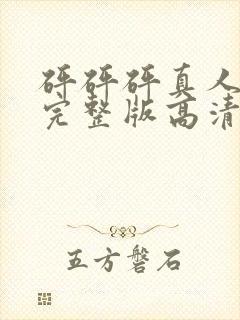 砰砰砰真人
完整版高清
五方磐石